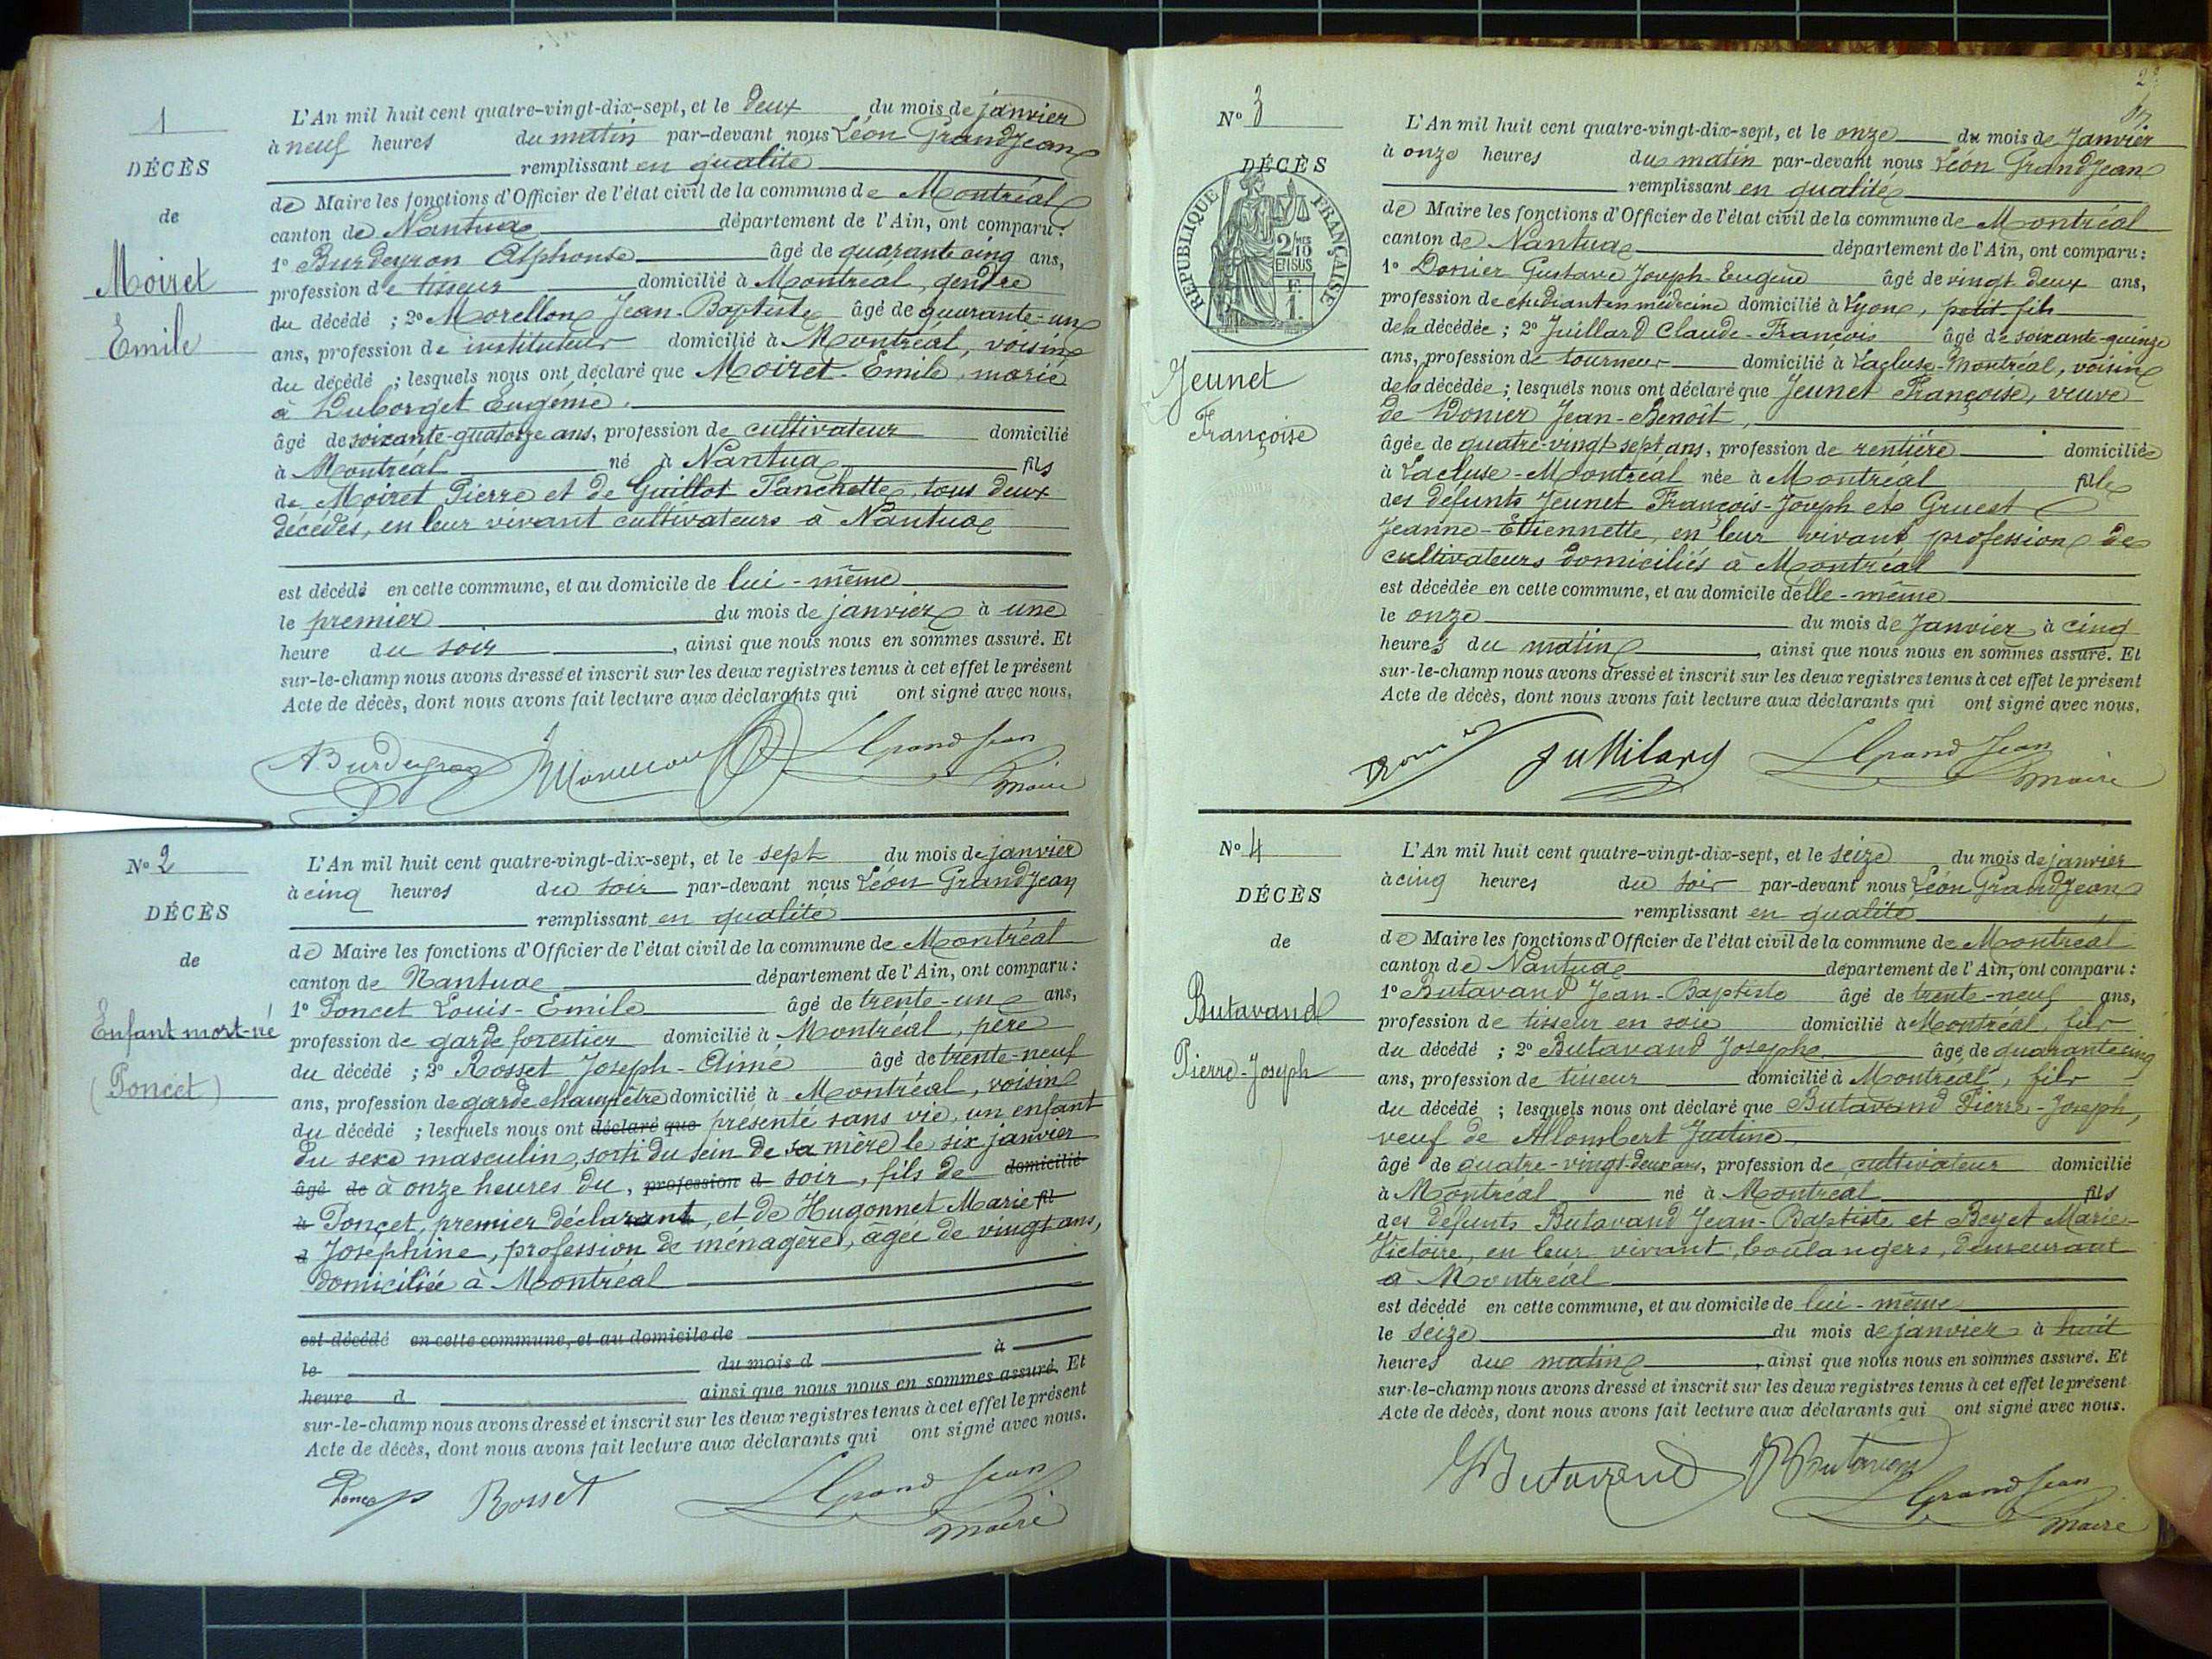 1
DÉCÈS
de
Moiret
Emile
L'An mil huit cent quatre-vingt-dix-sept, et le deux du mois de janvier
à neuf heures du matin par-devant nous Léon Grandjean
remplissant en qualité
de Maire les fonctions d'Officier de l'état civil de la commune de Montréal
canton de Nantua département de l'Ain, ont comparu:
1º Burdeyron Alphonse âgé de quarante cinq ans,
profession de tisseur domicilié à Montréal, gendre
du décédé ; 2º Morellon Jean-Baptiste âgé de quarante-un
ans, profession de instituteur domicilié à Montréal, voisin
du décédé ; lesquels nous ont déclaré que Moiret Emile, marié
à Duborget Eugénie.
âgé de soixante-quatorze ans, profession de cultivateur domicilié
à Montréal né à Nantua fils
de Moiret Pierre et de Guillot Fanchette, tous deux
décédés, en leur vivant cultivateurs à Nantua
est décédé en cette commune, et au domicile de lui-même
le premier du mois de janvier à une
heure du soir, ainsi que nous nous en sommes assuré. Et
sur-le-champ nous avons dressé et inscrit sur les deux registres tenus à cet effet le présent
Acte de décès, dont nous avons fait lecture aux déclarants qui ont signé avec nous.
ABurdeyron LGrandJean
maire
Nº 2
DÉCÈS
de
Enfant mort-né
(Poncet)
L'An mil huit cent quatre-vingt-dix-sept, et le sept du mois de janvier
à cinq heures du soir par-devant nous Léon Grandjean
remplissant en qualité
de Maire les fonctions d'Officier de l'état civil de la commune de Montréal
canton de Nantua département de l'Ain, ont comparu:
1º Poncet Louis-Emile âgé de trente-un ans,
profession de garde forestier domicilié à Montréal, père
du décédé ; 2º Rosset Joseph-Aimé âgé de trente-neuf
ans, profession de garde champêtre domicilié à Montréal, voisin
du décédé ; lesquels nous ont déclaré que présenté sans vie, un enfant
du sexe masculin, sorti du sein de sa mère le six janvier
âgé de à onze heures du, profession d soir, fils de domicilié
à Poncet, premier déclarant, et de Hugonnet Marie fil
d Joséphine, profession de ménagère, âgée de vingt ans,
domiciliée à Montréal
est décédé en cette commune, et au domicile de
le du mois d à
heure d ainsi que nous nous en sommes assuré. Et
sur-le-champ nous avons dressé et inscrit sur les deux registres tenus à cet effet le présent
Acte de décès, dont nous avons fait lecture aux déclarants qui ont signé avec nous.
Poncet Rosset LGrandJean
maire
Nº 3
DÉCÈS
RÉPUBLIQUE FRANÇAISE
2/10
EN SUS
F.
1.
Jeunet
Françoise
L'An mil huit cent quatre-vingt-dix-sept, et le onze du mois de Janvier
à onze heures du matin par-devant nous Léon Grandjean
remplissant en qualité
de Maire les fonctions d'Officier de l'état civil de la commune de Montréal
canton de Nantua département de l'Ain, ont comparu:
1º Donier Gustave Joseph Eugène âgé de vingt deux ans,
profession de étudiant en médecine domicilié à Lyon, petit-fils
de la décédée ; 2º Juillard Claude-François âgé de soixante-quinze
ans, profession de tourneur domicilié à Lacluse-Montréal, voisin
de la décédée ; lesquels nous ont déclaré que Jeunet Françoise, veuve
de Donier Jean-Benoit,
âgée de quatre-vingt sept ans, profession de rentière domiciliée
à Lacluse-Montréal née à Montréal fille
des défunts Jeunet François-Joseph et Gruest
Jeanne-Etiennette, en leur vivant profession de
cultivateurs domiciliés à Montréal
est décédée en cette commune, et au domicile d'elle-même
le onze du mois de Janvier à cinq
heures du matin, ainsi que nous nous en sommes assuré. Et
sur-le-champ nous avons dressé et inscrit sur les deux registres tenus à cet effet le présent
Acte de décès, dont nous avons fait lecture aux déclarants qui ont signé avec nous.
Donier LGrandJean
maire
Nº 4
DÉCÈS
de
Butavand
Pierre-Joseph
L'An mil huit cent quatre-vingt-dix-sept, et le seize du mois de janvier
à cinq heures du soir par-devant nous Léon Grandjean
remplissant en qualité
de Maire les fonctions d'Officier de l'état civil de la commune de Montréal
canton de Nantua département de l'Ain, ont comparu:
1º Butavand Jean-Baptiste âgé de trente-neuf ans,
profession de tisseur en soie domicilié à Montréal, fils
du décédé ; 2º Butavand Joseph âgé de quarante cinq
ans, profession de tisseur domicilié à Montréal, fils
du décédé ; lesquels nous ont déclaré que Butavand Pierre-Joseph,
veuf de Allombert Justine,
âgé de quatre-vingt-deux ans, profession de cultivateur domicilié
à Montréal né à Montréal fils
des défunts Butavand Jean-Baptiste et Beyet Marie-
Victoire, en leur vivant, boulangers, demeurant
à Montréal
est décédé en cette commune, et au domicile de lui-même
le seize du mois de janvier à huit
heures du matin, ainsi que nous nous en sommes assuré. Et
sur-le-champ nous avons dressé et inscrit sur les deux registres tenus à cet effet le présent
Acte de décès, dont nous avons fait lecture aux déclarants qui ont signé avec nous.
Butavand Butavand
LGrandJean
maire